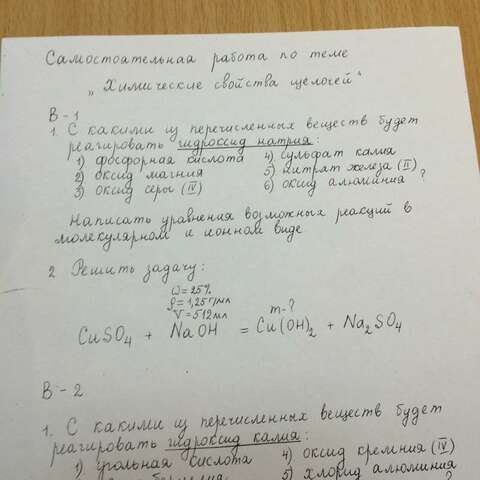 Самостоятельная работа по теме
„Химические свойства щелочей"
В-1
1. С какими из перечисленных веществ будет
реагировать гидроксид натрия:
1) фосфорная кислота 4) сульфат калия
2) оксид магния 5) нитрат железа (II)
3) оксид серы (IV) 6) оксид алюминия ?
Написать уравнения возможных реакций в
молекулярном и ионном виде
2 Решить задачу:
ω=25%
ρ=1,25г/мл
V=512мл m-?
CuSO₄ + NaOH = Cu(OH)₂ + Na₂SO₄
В-2
1. С какими из перечисленных веществ будет
реагировать гидроксид калия:
1) угольная кислота 4) оксид кремния (IV)
5) хлорид алюминия